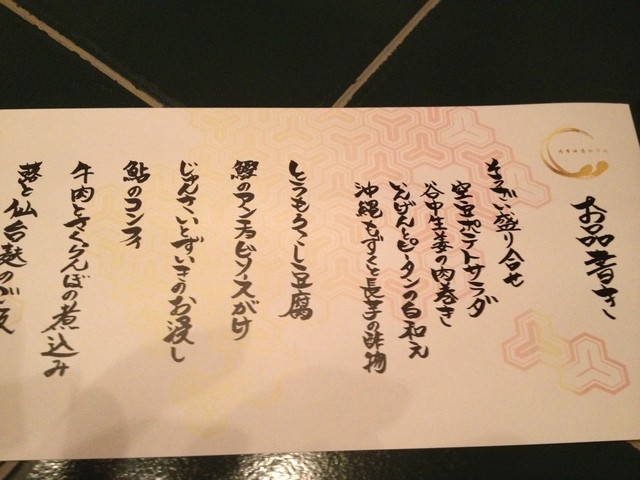 お品書き
おしのぎ盛り合せ
空豆ポテトサラダ
谷中生姜の肉巻き
いんげんとピータンの白和え
沖縄もずくと長芋の酢物
とうもろこし豆腐
鰹のアンチョビソースがけ
じゅんさいとずいきのお浸し
鮎のコンフィ
牛肉とさくらんぼの煮込み
蕗と仙台麩の